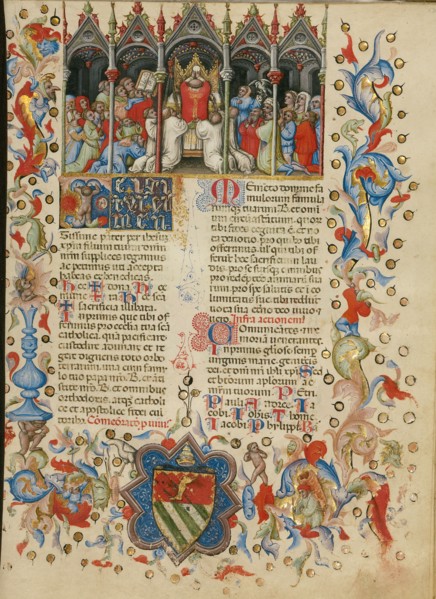 Te igi
tur cle
men
tissime pater per ihesum
xpm filium tuum domi
num supplices rogamus
ac petimus uti accepta
habeas et benedicas
hec dona hec
sacrificia illibata.
Inprimis que tibi of
ferimus pro ecclesia tua sca
catholica. quam pacificare
custodire adunare et re
gere digneris toto orbe
terrarum. una cum famu
lo tuo papa nro .B. et an
tistite nro .B. et omnibus
orthodoxis. atque catholi
ce et apostolice fidei cul
toribus.
Memento domine fa
mulorum famula
rumque tuarum .B. et omni
um circumastantium. quor
tibi fides cognita est. et no
ta devotio. pro quibus tibi
offerimus. vel qui tibi of
ferunt hoc sacrificium lau
dis. pro se suisque omnibus
pro redemptione animarum sua
rum. pro spe salutis et in
columitatis sue. tibi reddunt
vota sua eterno deo vivo et
vero. Infra actionem
Comunicantes. et me
moriam venerantes.
Inprimis gloriose semp
virginis marie. genitricis
dei et domini nri ihu xpi. Sed
et beatorum aplorum ac
martirum tuorum. Petri
Pauli Andree. Ia
cobi Iohis. Thome
Iacobi Philippi. B